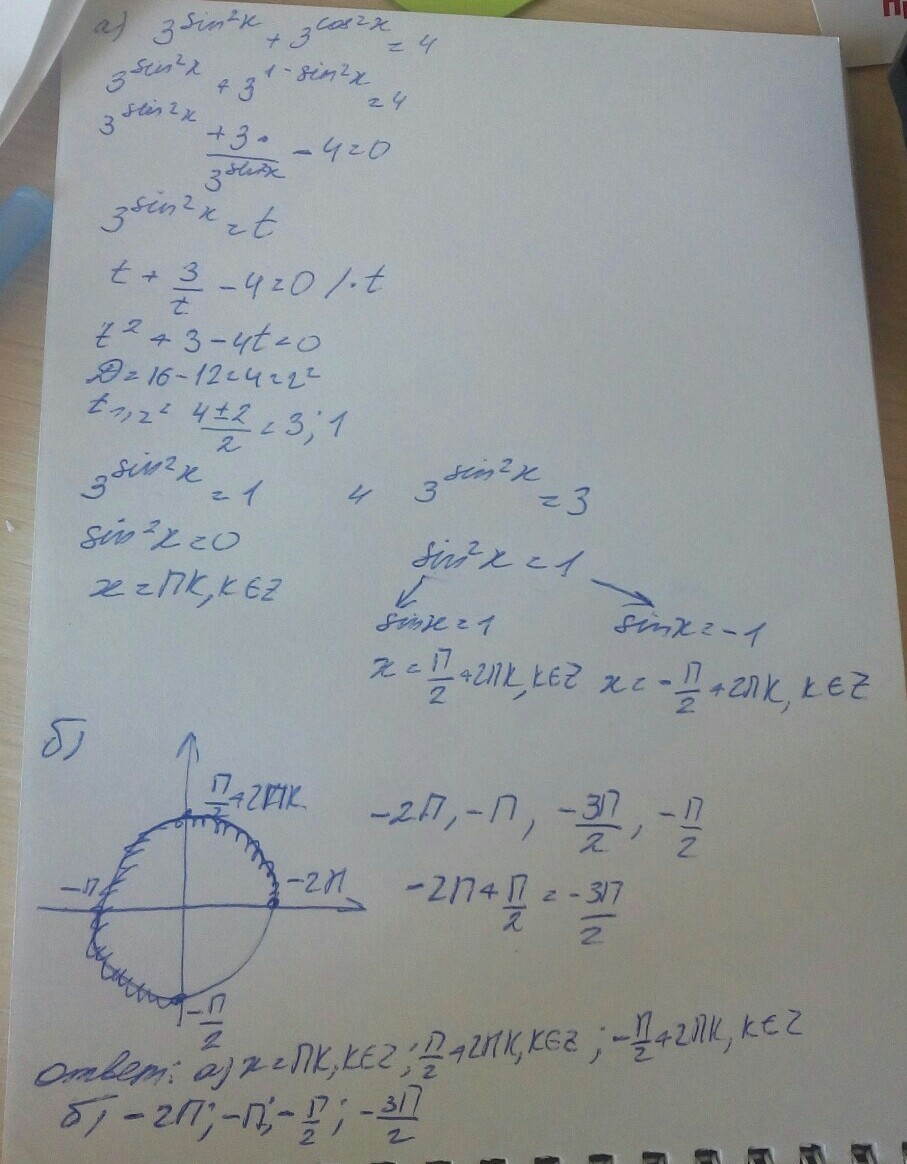 а) 3^sin²x + 3^cos²x = 4
3^sin²x + 3^1-sin²x = 4
3^sin²x + 3·/3^sin²x - 4 = 0
3^sin²x = t
t + 3/t - 4 = 0 /·t
t² + 3 - 4t = 0
D = 16 - 12 = 4 = 2²
t₁,₂ = 4±2/2 = 3; 1
3^sin²x = 1 и 3^sin²x = 3
sin²x = 0
sin²x = 1
x = Пk, k∈Z
sinx = 1 sinx = -1
x = П/2 + 2Пk, k∈Z x = -П/2 + 2Пk, k∈Z
б)
П/2 + 2Пk
-П
-2П
-П/2
-2П, -П, -3П/2, -П/2
-2П + П/2 = -3П/2
Ответ: а) x = Пk, k∈Z; П/2 + 2Пk, k∈Z; -П/2 + 2Пk, k∈Z
б) -2П; -П; -П/2; -3П/2